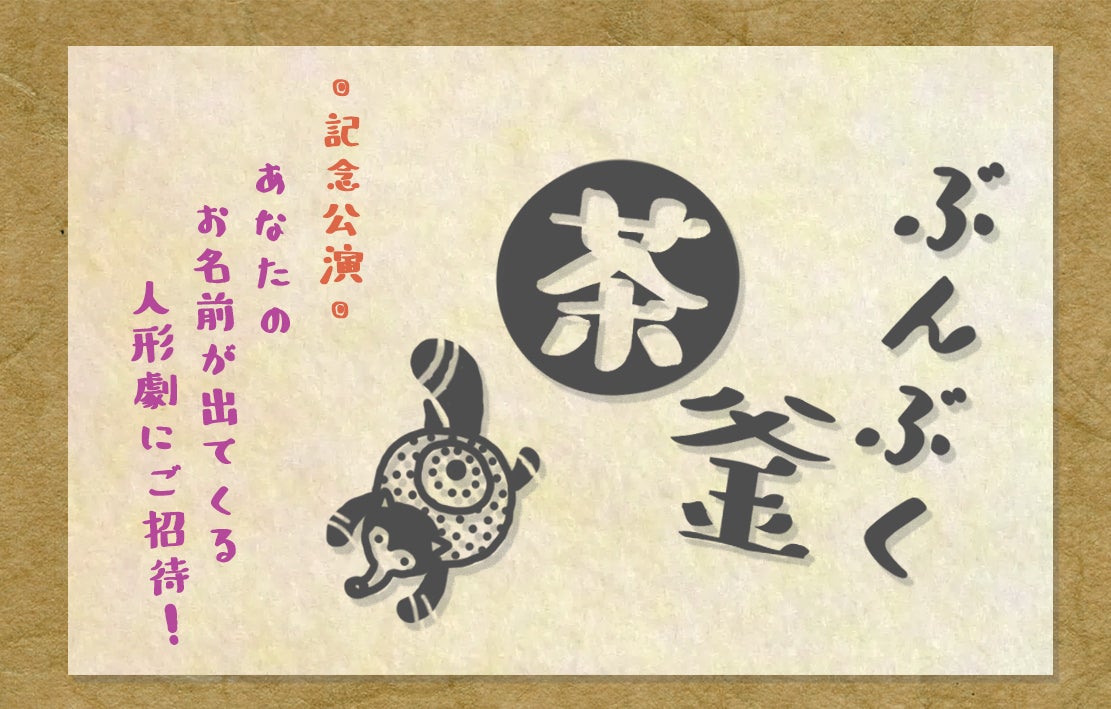 ぶんぶく
茶釜
◎記念公演◎
あなたの
お名前が出てくる
人形劇にご招待!